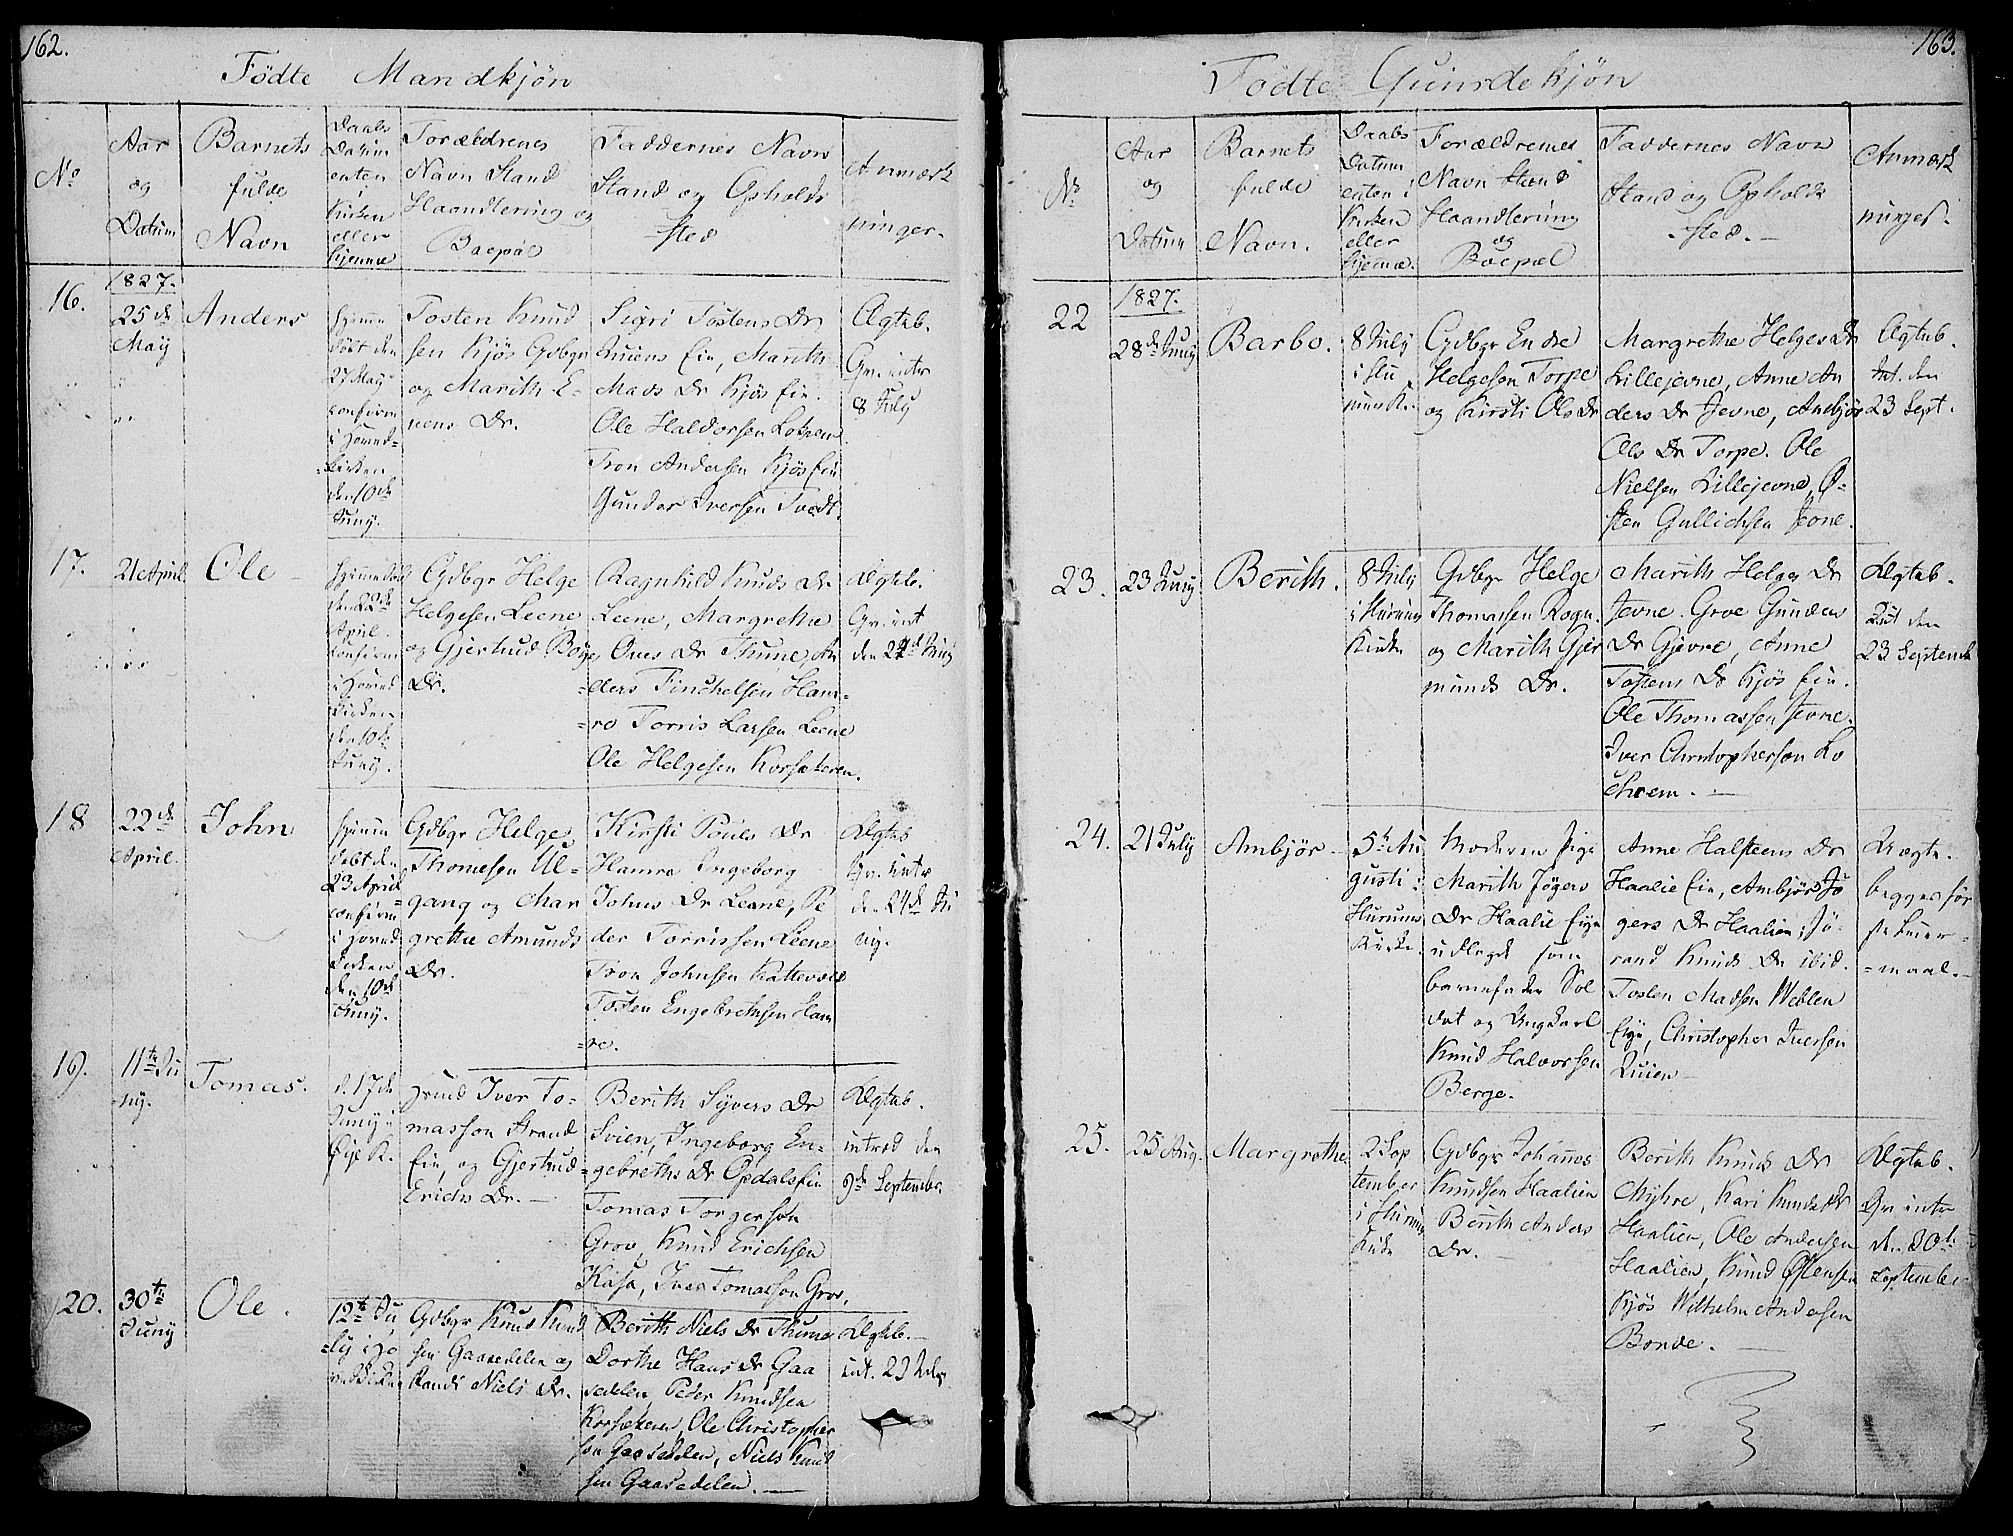 162.
Födte Mandkjön
No
Aar
og
Datum
Barnets
fulde
Navn
Daabs
Datum
enten
i
Kirken
eller
hjemme
Forældrenes
Navn Stand
Haandtering og
Boepæl
Faddernes Navn
Stand og Opholds
sted
Anmærk
ninger.
16.
1827.
25de
May
Anders
hjemme
döbt den
27 May
confirm
i Hoved=
kirken
den 10de
Juny.
Tosten Knud
sen Kjös Gdbgr
og Marith E=
nens Dr.
Sigri Tostens Dr
Quiens Eie, Marith
Mads Dr Kjös Eie.
Ole Haldorsen Loken
Tron Andersen Kjös Eie
Gunder Iversen Tvedt.
Ægteb.
Qv. intr
8 July
17.
21 April
Ole
hjemmedöbt
den 22de
April
confirm
i Hoved
kirken
den 10de
Juny.
Gdbgr Helge
Helgesen Leene
og Gjertrud Boye
Dr.
Ragnhild Knuds Dr
Leene, Margrethe
Oves Dr Thune, An
=ders Finckelsen Ham=
=re Torris Larsen Leene
Ole Helgesen Korsækeren.
Ægteb.
Qv. int
den 24de Juny
18
22de
April.
John
hjemme
döbt den
23 April
confirm
i Hoved
kirken
den 10de
Juny.
Gdbgr Helge
Thomesen Ul=
gang og Mar
grethe Amunds
Dr.
Kirsti Poules Dr
Hamre Ingeborg
Johns Dr Leene, Pe
der Torrissen Leene
Tron Johnsen Kattevold
Tosten Engebrethsen Ham
=re.
Ægteb
Qv. intr
den 24de Ju
ny.
19.
11te Ju
ny.
Tomas.
d. 17de
Juny i
Öije K.
Huusd Iver To=
masson Strand
Eie, og Gjertrud
Erichs Dr.
Berith Syvers Dr
Svien, Ingeborg En=
=gebreths Dr Opdalseie
Tomas Torgerson
Grov, Knud Erichsen
Kasa, Iver Tomasson Grov,
Ægteb.
introd den
9de September
20.
30te
Juny
Ole.
12te Ju
=ly i Ho
vedkirken
Gdbgr Knud Knud
sen Gaasedelen og
Randi Niels Dr.
Berith Niels Dr Thune
Dorthe Hans Dr Gaa
sedelen, Peder Knudsen
Korsækeren, Ole Christopher
sen Gaasedelen, Niels Knud
sen Gaasedelen.
Ægteb.
int. 23
163.
Födte Quindekjön
No
Aar
og
Datum
Barnets
fulde
Navn.
Daabs
Datum
enten i
Kirken
eller
hjemme.
Forældrenes
Navn Stand
Haandtering
og
Boepæl
Faddernes Navn
Stand og Opholds
sted.
Anmærk
ninger.
22
1827.
28de Juny
Barbo.
8 July
i Hu
rum K.
Gdbgr Endre
Helgesen Torpe
og Kirsti Ols Dr
Margrethe Helges Dr
Lillejevne, Anne An
ders Dr Jevne, Ambjör
Ols Dr Torpe. Ole
Nielsen Lillejevne, Ö=
sten Gullichsen Jevne.
Ægteb.
Int. den
23 Sept.
23.
23 Juny
Berith.
8 July
i Hurum
Kirke
Gdbgr Helge
Thomassen Rogn
og Marith Gjer
munds Dr.
Marith Helges Dr
Jevne. Groe Gunders
Dr Gjevre, Anne
Tostens Dr Kjös Eie.
Ole Thomassen Jevne.
Iver Christophersen Lo
=chrem.
Ægteb.
Int den
23 Septemb
24.
21 July
Ambjör
5te Au
gusti i
Hurums
Kirke.
Moderen Pige
Marith Jögers
Dr Haalie Eije
udlegt som
barnefader Sol
dat og Ungkarl
Knud Halvorsen
Berge.
Anne Halsteens Dr
Haalie Eie, Ambjör Jö
gers Dr Haalien, Jö=
rand Knuds Dr ibid.
Tosten Madsen Weblen
Eije, Christopher Iversen
Quien
Uægte.
begges för
ste Leier=
=maal.
25.
25 Aug.
Margrethe
2 Sep
tember
i Hurum
Kirke
Gdbgr Johannes
Knudsen Haalien
Berith Anders
Dr.
Berith Knuds Dr
Myhre, Kari Knuds Dr
Haalien, Ole Andersen
Haalien, Knud Östensen
Kjös Wilhelm Andersen
Bonde.
Ægteb.
Qv intr
den 30te
September